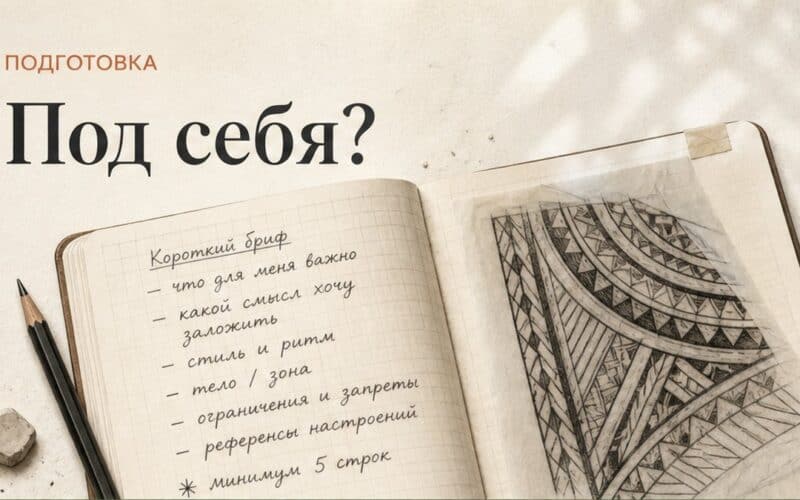 ПОДГОТОВКА
Под себя?
Короткий бриф
– что для меня важно
– какой смысл хочу
заложить
– стиль и ритм
– тело / зона
– ограничения и запреты
– референсы настроений
* минимум 5 строк